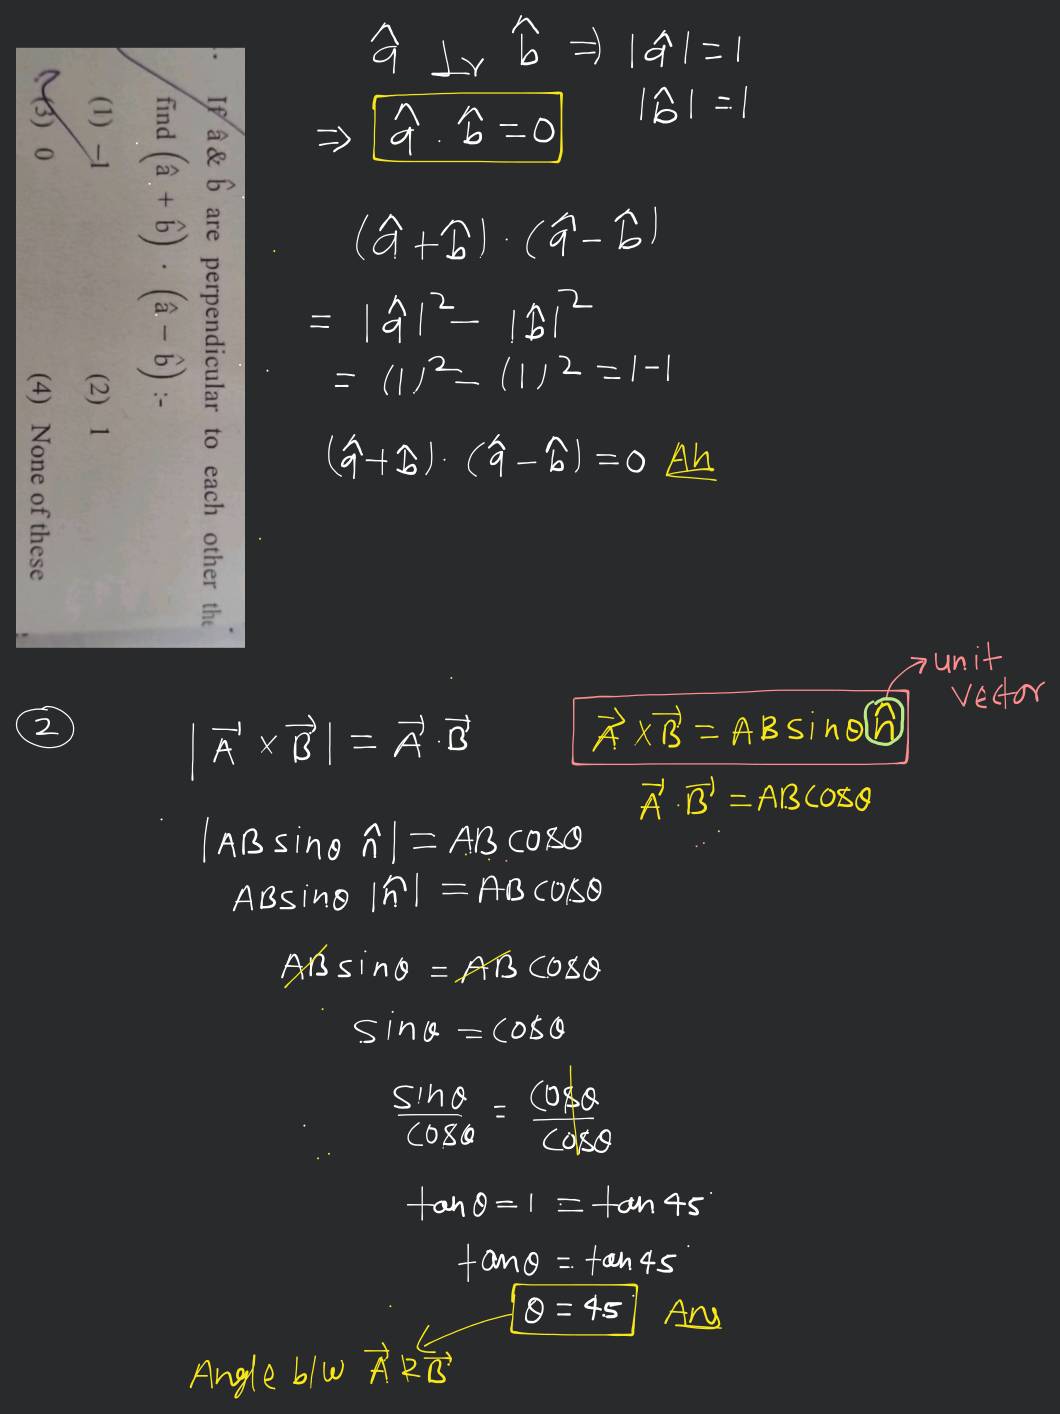 If â & b̂ are perpendicular to each other the
find (â + b̂) · (â − b̂) :-
(1) −1 (2) 1
(3) 0 (4) None of these
â ⊥r b̂ ⇒ |â| = 1
|b̂| = 1
⇒ â . b̂ = 0
(â + b̂) · (â − b̂)
= |â|² − |b̂|²
= (1)² − (1)² = 1 − 1
(â + b̂) · (â − b̂) = 0 An
unit
vector
② |A⃗ × B⃗| = A⃗ · B⃗
A⃗ × B⃗ = AB sinθ n̂
A⃗ · B⃗ = AB cosθ
|AB sinθ n̂| = AB cosθ
AB sinθ |n̂| = AB cosθ
AB sinθ = AB cosθ
sinθ = cosθ
sinθ/cosθ = cosθ/cosθ
tanθ = 1 = tan 45°
tanθ = tan 45°
θ = 45° Ans
Angle b/w A⃗ & B⃗